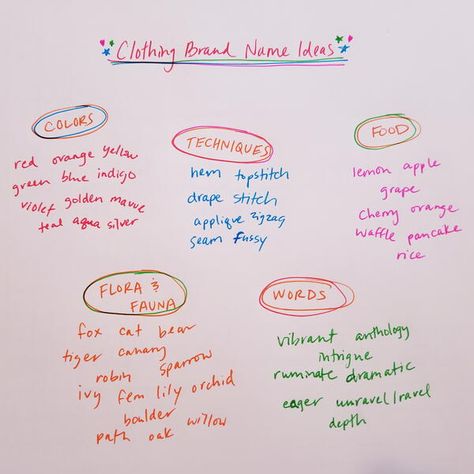 Clothing Brand Name Ideas
COLORS
red orange yellow
green blue indigo
violet golden mauve
teal aqua silver
TECHNIQUES
hem topstitch
drape stitch
applique zigzag
seam fussy
FOOD
lemon apple
grape
cherry orange
waffle pancake
rice
FLORA &
FAUNA
fox cat bear
tiger canary
robin sparrow
ivy fern lily orchid
boulder
path oak willow
WORDS
vibrant anthology
intrigue
ruminate dramatic
eager unravel/ravel
depth